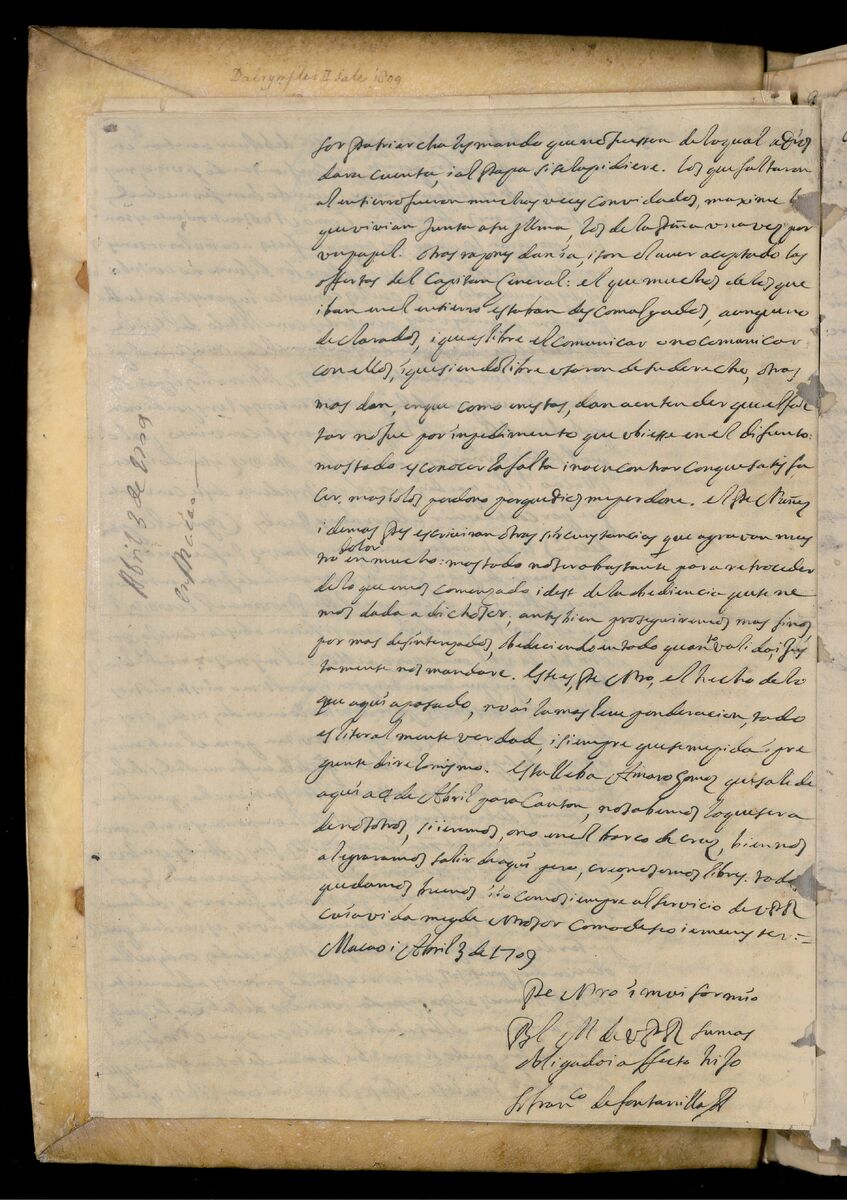 Dalrymples II Sale 1809
sor Patriarcha les mando que no fuessen de lo qual a Dios
dara cuenta, i al Papa si se la pidiere. Los que faltaron
al entierro fueron muchas veces convidados, maxime los
que vivian junta a su Illma, los de la Peña una vez por
un papel. Otras razones dan sa, i son el aver aceptado las
offertas del Capitan General: el que muchos de los que
iban en el entierro estaban descomulgados, aunque no
declarados, i que es libre el comunicar o no comunicar
con ellos, i que siendo libre usaron de su derecho, otras
mas dan, en que como en estas, dan a entender que el fal
tar no fue por inpedimento que ubiesse en el difunto:
mas todo es conocer la falta i no encontrar con que satisfa
cer, mas todos perdono porque Dios me perdone. el Pe Nuñez
i demas Pes escriviran otras sircunstancias que agravan nues
tro dolor en mucho: mas todo no sera bastante para retroceder
de lo que emos comenzado idest de la obediencia que tene
mos dada a dicho Ser, antes bien proseguiremos mas finos
por mas desintereçados, obedeciendo en todo quanto valida, i jus
tamente nos mandare. Este es, Pe Nro, el hecho de lo
que aqui a pasado, no ai la mas leve ponderacion, todo
es literalmente verdad, i siempre que se me pida o pre
gunte dire lo mismo. Esta lleba Amaro Gomez que sale de
aqui a 4 de Abril para Canton, no sabemos lo que sera
de nosotros, si iremos, o no en el barco de cruz, bien nos
alegraramos salir de aqui pero, creo, no somos libres. todos
quedamos buenos i io como siempre al servicio de V P R
cuia vida nos gde Nro Sor como deseo i e menester =
Macao i Abril 3 de 1709
Pe Nro i mui sor mio
B l M de V P R su mas
obligado i affecto hijo
fr Franco de fontanilla
Abril 3 de 1709
en Macao